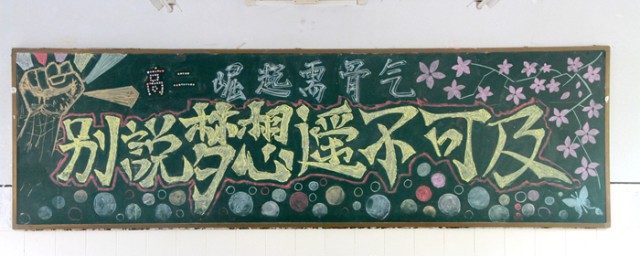 高二崛起需骨气
别説梦想遥不可及